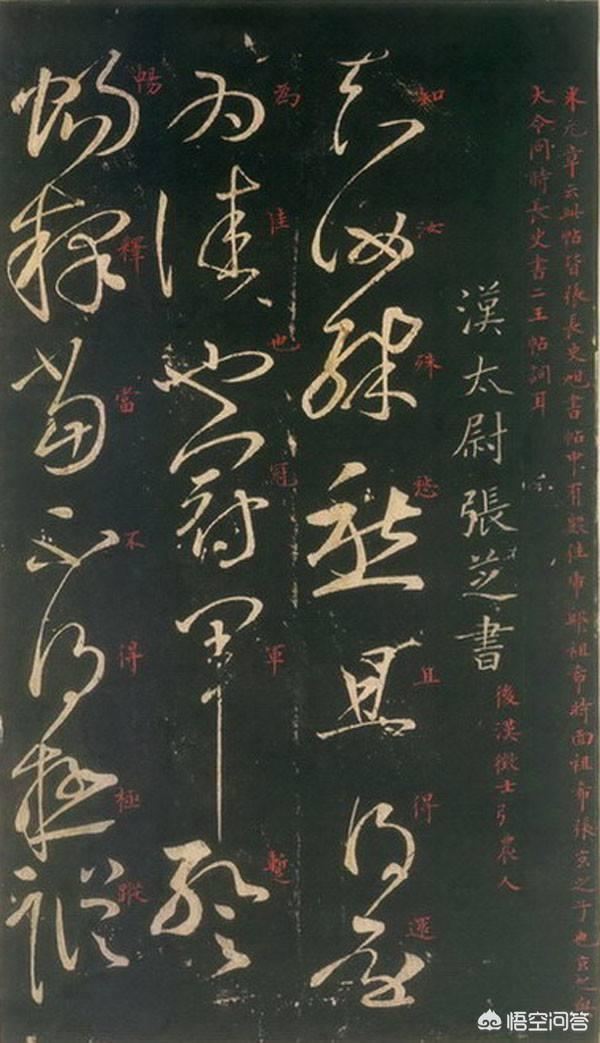 米元章云此帖皆張長史旭書帖中有數往虎邱祖希時面祖希張玄之字也玄之與
大令同時長史書二王帖詞耳
漢太尉張芝書
後漢徵士弘農人
知汝殊愁且得還
知汝殊愁且得還
為佳也冠軍暫
為佳也冠軍暫
暢釋當不得極蹤
暢釋當不得極蹤
悟空问答